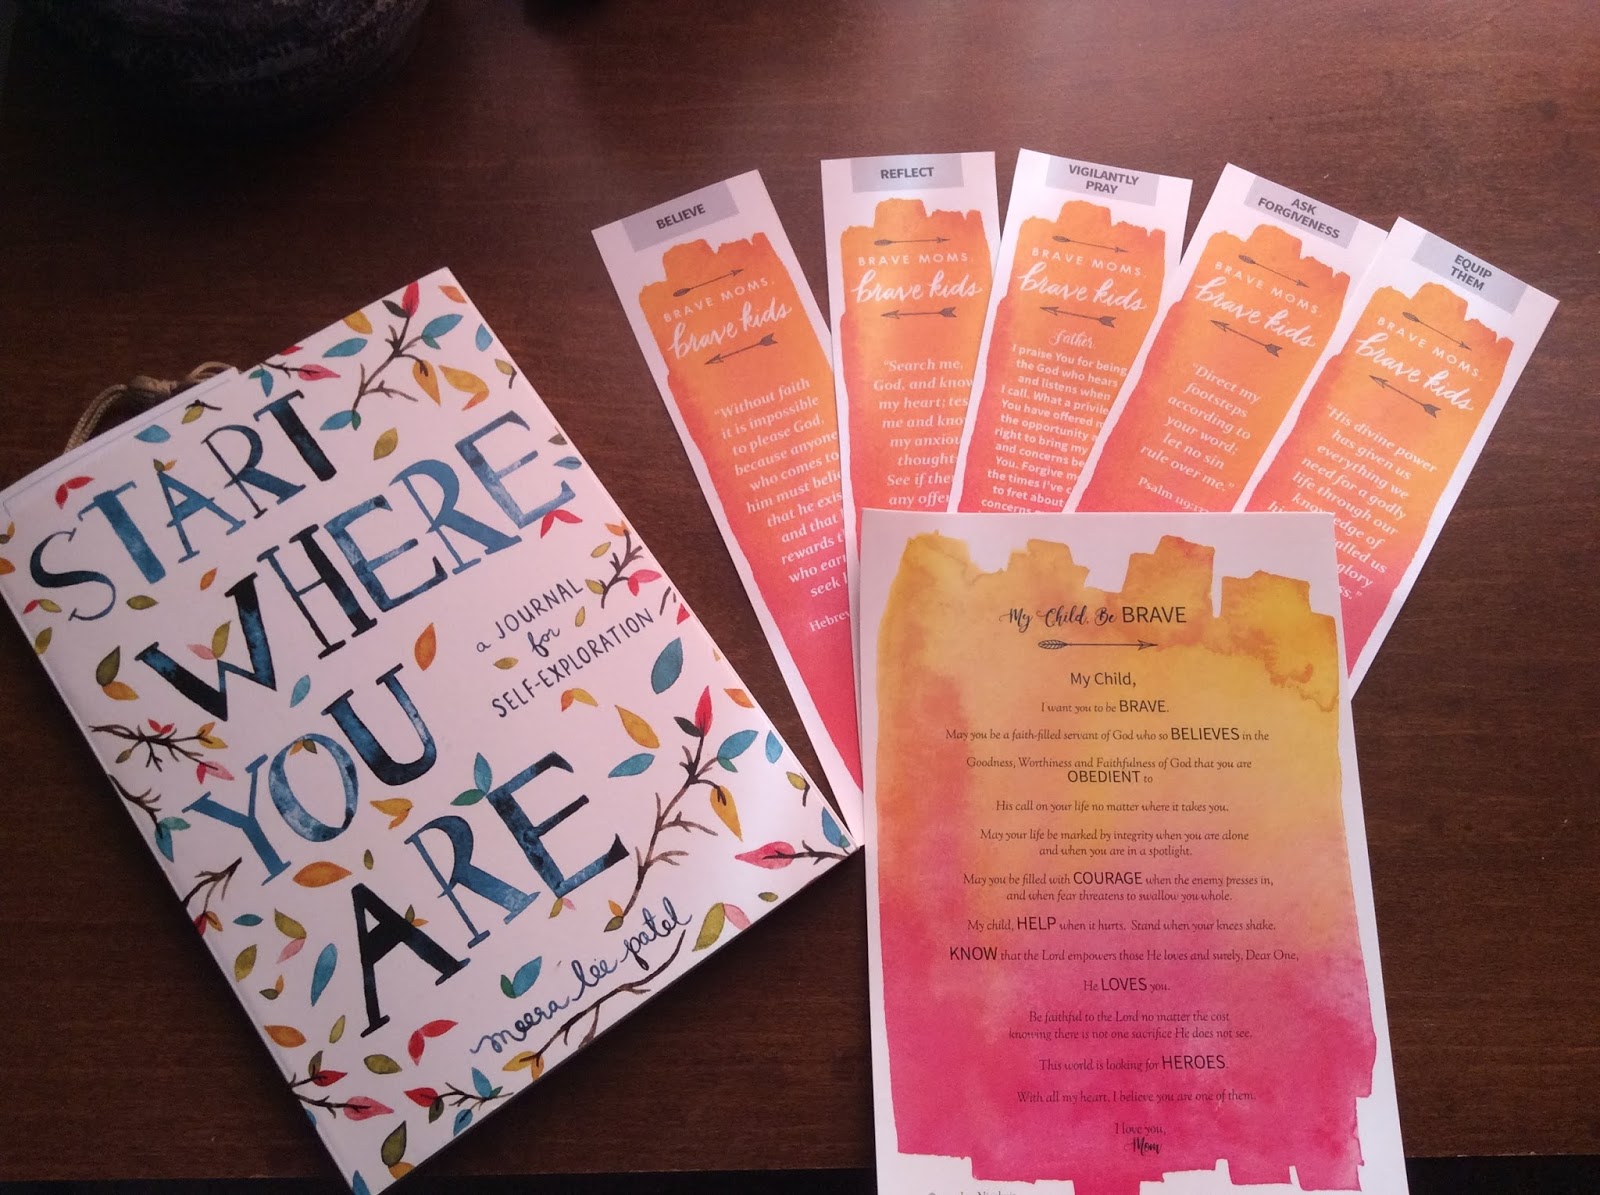 START
WHERE
YOU
ARE
a JOURNAL
for
SELF-EXPLORATION
meera lee patel
BELIEVE
BRAVE MOMS,
brave kids
"Without faith
it is impossible
to please God,
because anyone
who comes to
him must
that he
and that
rewards
who
seek
REFLECT
BRAVE MOMS,
brave kids
"Search me,
God, and know
my heart;
me and know
my
See if
any
VIGILANTLY
PRAY
BRAVE MOMS,
brave kids
Father,
I praise You for being
the God who hears
and listens when
I call. What a
You have offered
the opportunity
right to bring my
and concerns
You. Forgive
the times I've
to fret about
concerns
ASK
FORGIVENESS
BRAVE MOMS,
brave kids
"Direct my
footsteps
according to
your word;
let no sin
rule over me."
Psalm
EQUIP
THEM
BRAVE MOMS,
brave kids
"His divine power
has given us
everything we
need for a godly
life through our
knowledge of
called us
glory
My Child, Be BRAVE
My Child,
I want you to be BRAVE.
May you be a faith-filled servant of God who so BELIEVES in the
Goodness, Worthiness and Faithfulness of God that you are
OBEDIENT to
His call on your life no matter where it takes you.
May your life be marked by integrity when you are alone
and when you are in a spotlight.
May you be filled with COURAGE when the enemy presses in,
and when fear threatens to swallow you whole.
My child, HELP when it hurts. Stand when your knees shake.
KNOW that the Lord empowers those He loves and surely, Dear One,
He LOVES you.
Be faithful to the Lord no matter the cost
knowing there is not one sacrifice He does not see.
This world is looking for HEROES.
With all my heart, I believe you are one of them.
I love you,
Mom